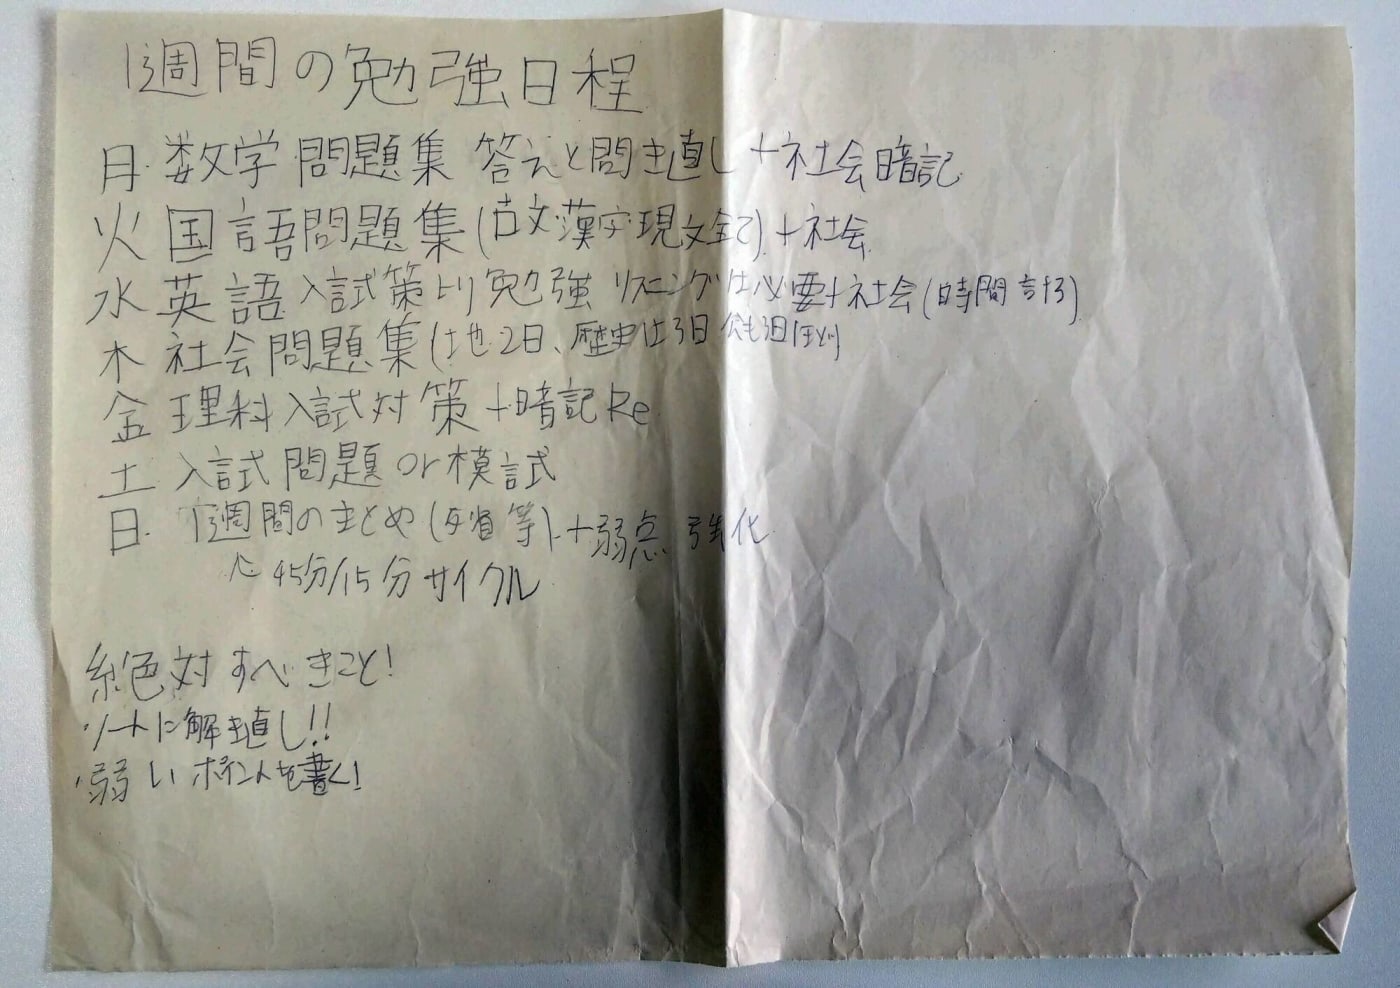 1週間の勉強日程
月 数学 問題集 答えと聞き直し +社会暗記
火 国語問題集(古文・漢字・現文全て) +社会
水 英語 入試策より勉強 リスニングは必要+社会(時間計る)
木 社会問題集(地2日、歴史は3日 公も3日
金 理科入試対策+暗記Re
土 入試問題or模試
日 1週間のまとめ(反省等)+弱点強化
45分/15分サイクル
絶対すべきこと!
ノートに解き直し!!
・弱いポイントを書く!